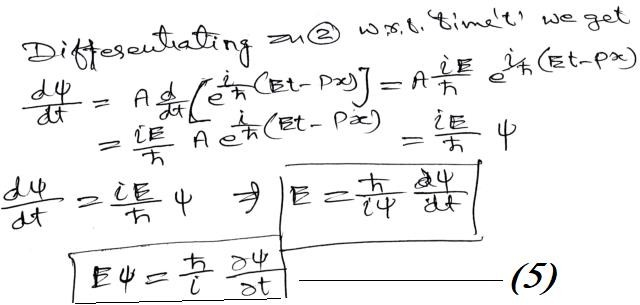 Differentiating eqn ② w.r.t. 'time't' we get
dψ/dt = A d/dt [e^{i/ħ (Et - Px)}] = A iE/ħ e^{i/ħ (Et - Px)}
= iE/ħ A e^{i/ħ (Et - Px)} = iE/ħ ψ
dψ/dt = iE/ħ ψ ⇒ E = ħ/iψ dψ/dt
Eψ = ħ/i ∂ψ/∂t (5)